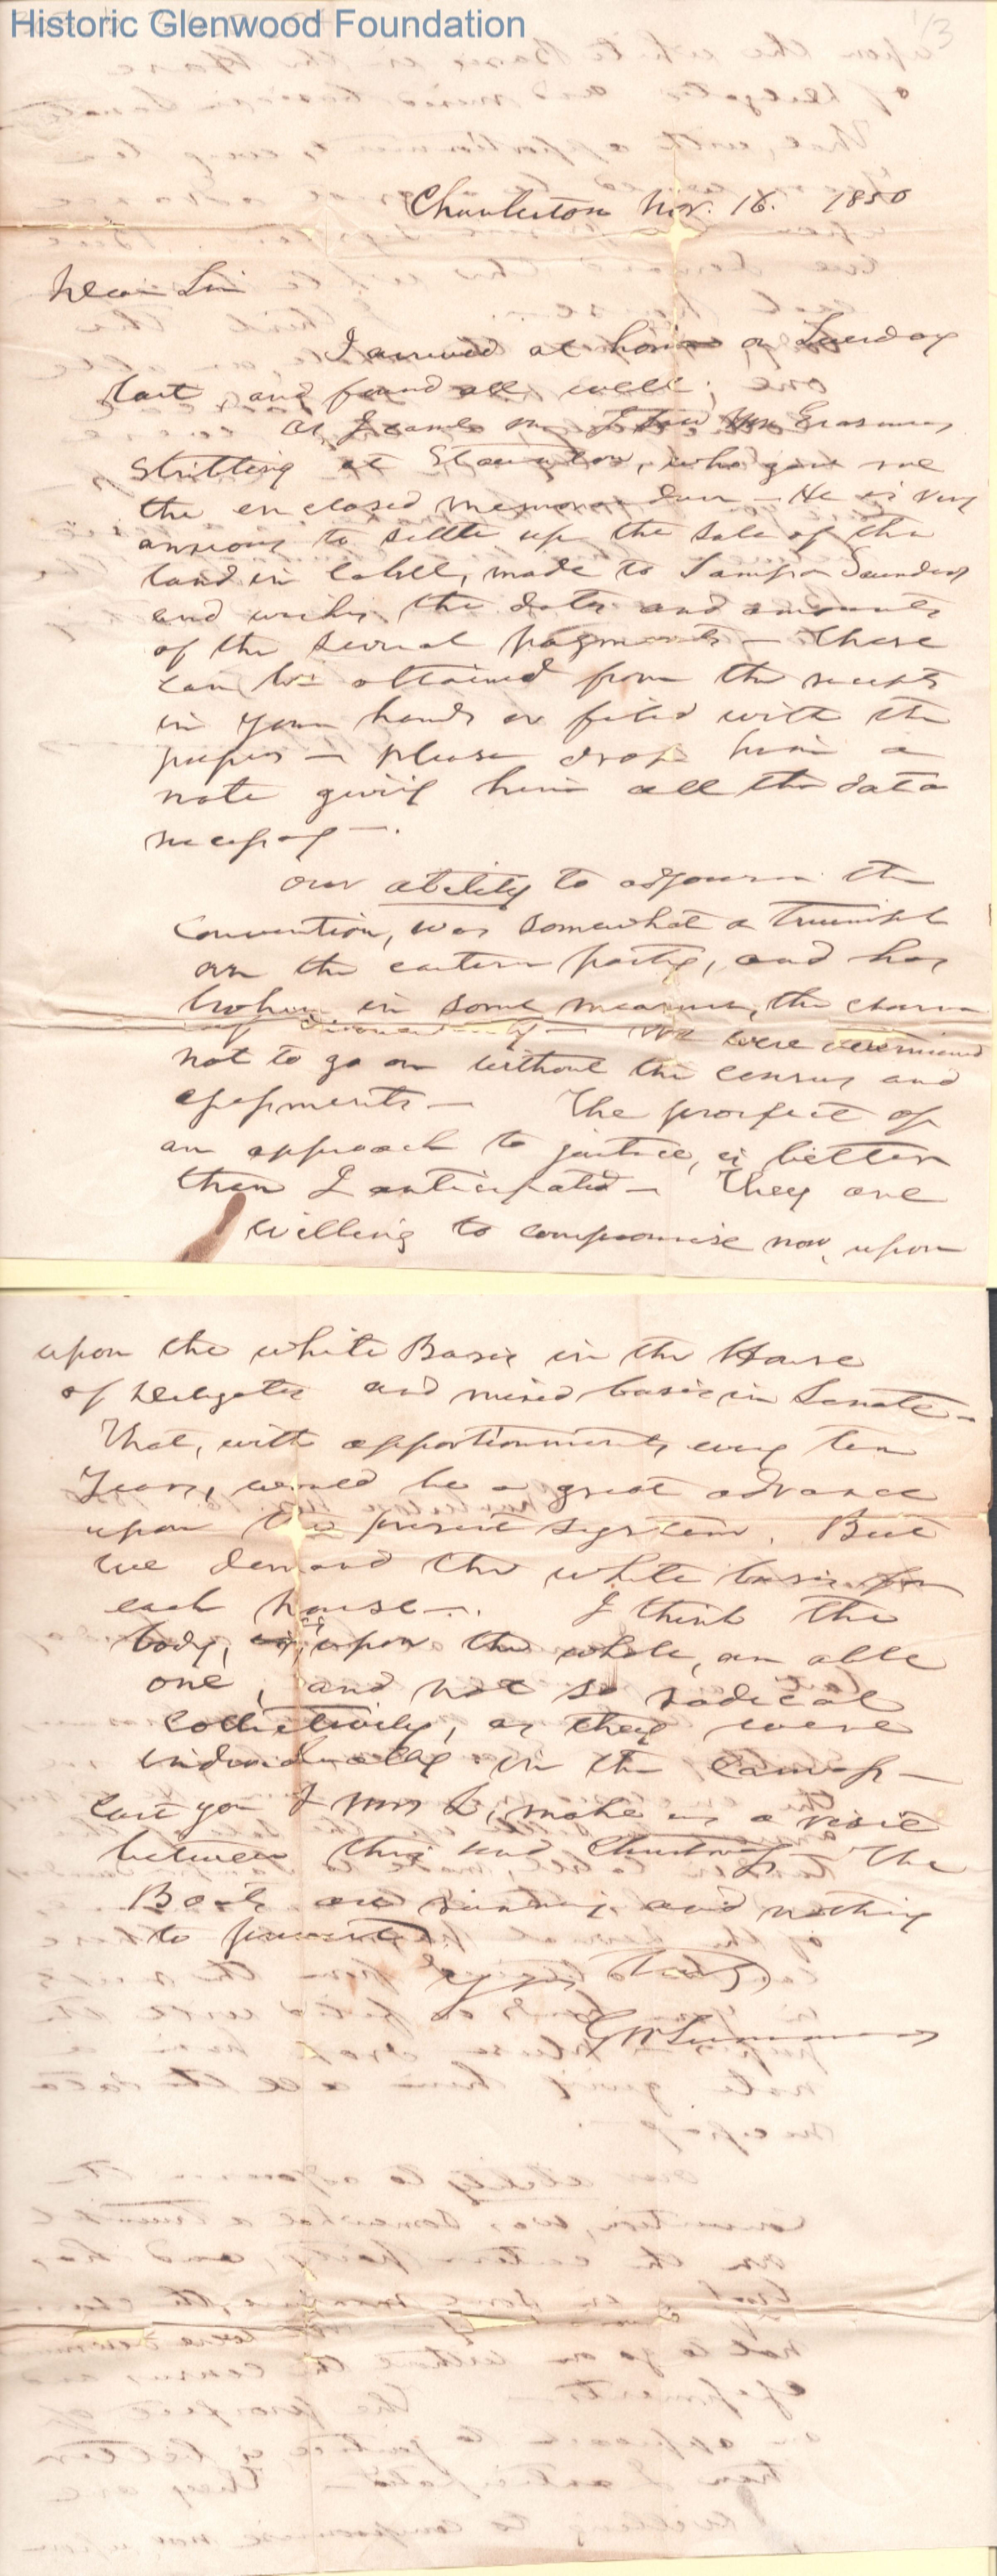 Historic Glenwood Foundation
1/3
Charleston Nov. 16. 1850
Dear Sir
I arrived at home on Tuesday
last and found all well;
As I came on I saw Mr Erasmus
Stribling at Staunton, who gave me
the enclosed memorandum — He is very
anxious to settle up the sale of the
land in Cabell, made to Sampson Saunders
and wishes the dates and amounts
of the several payments — These
can be obtained from the receipts
in your hands or filed with the
papers — please drop him a
note giving him all the data
necessary —.
Our ability to adjourn the
Convention, was somewhat a triumph
over the eastern party, and has
broken in some measure, the charm
of — We were determined
not to go on without the census and
assessments — The prospect of
an approach to justice, is better
than I anticipated — They are
willing to compromise now, upon
upon the white Basis in the House
of Delegates and mixed basis in Senate —
That, with apportionments every ten
Years, would be a great advance
upon the present system. But
we demand the white basis for
each house —. I think the
body, is, upon the whole, an able
one, and not so radical
collectively, as they were
individually in the canvass —
Can't you & Mrs L, make us a visit
between this and Christmas — The
Boats are running and nothing
to prevent
yours Truly
G W Summers